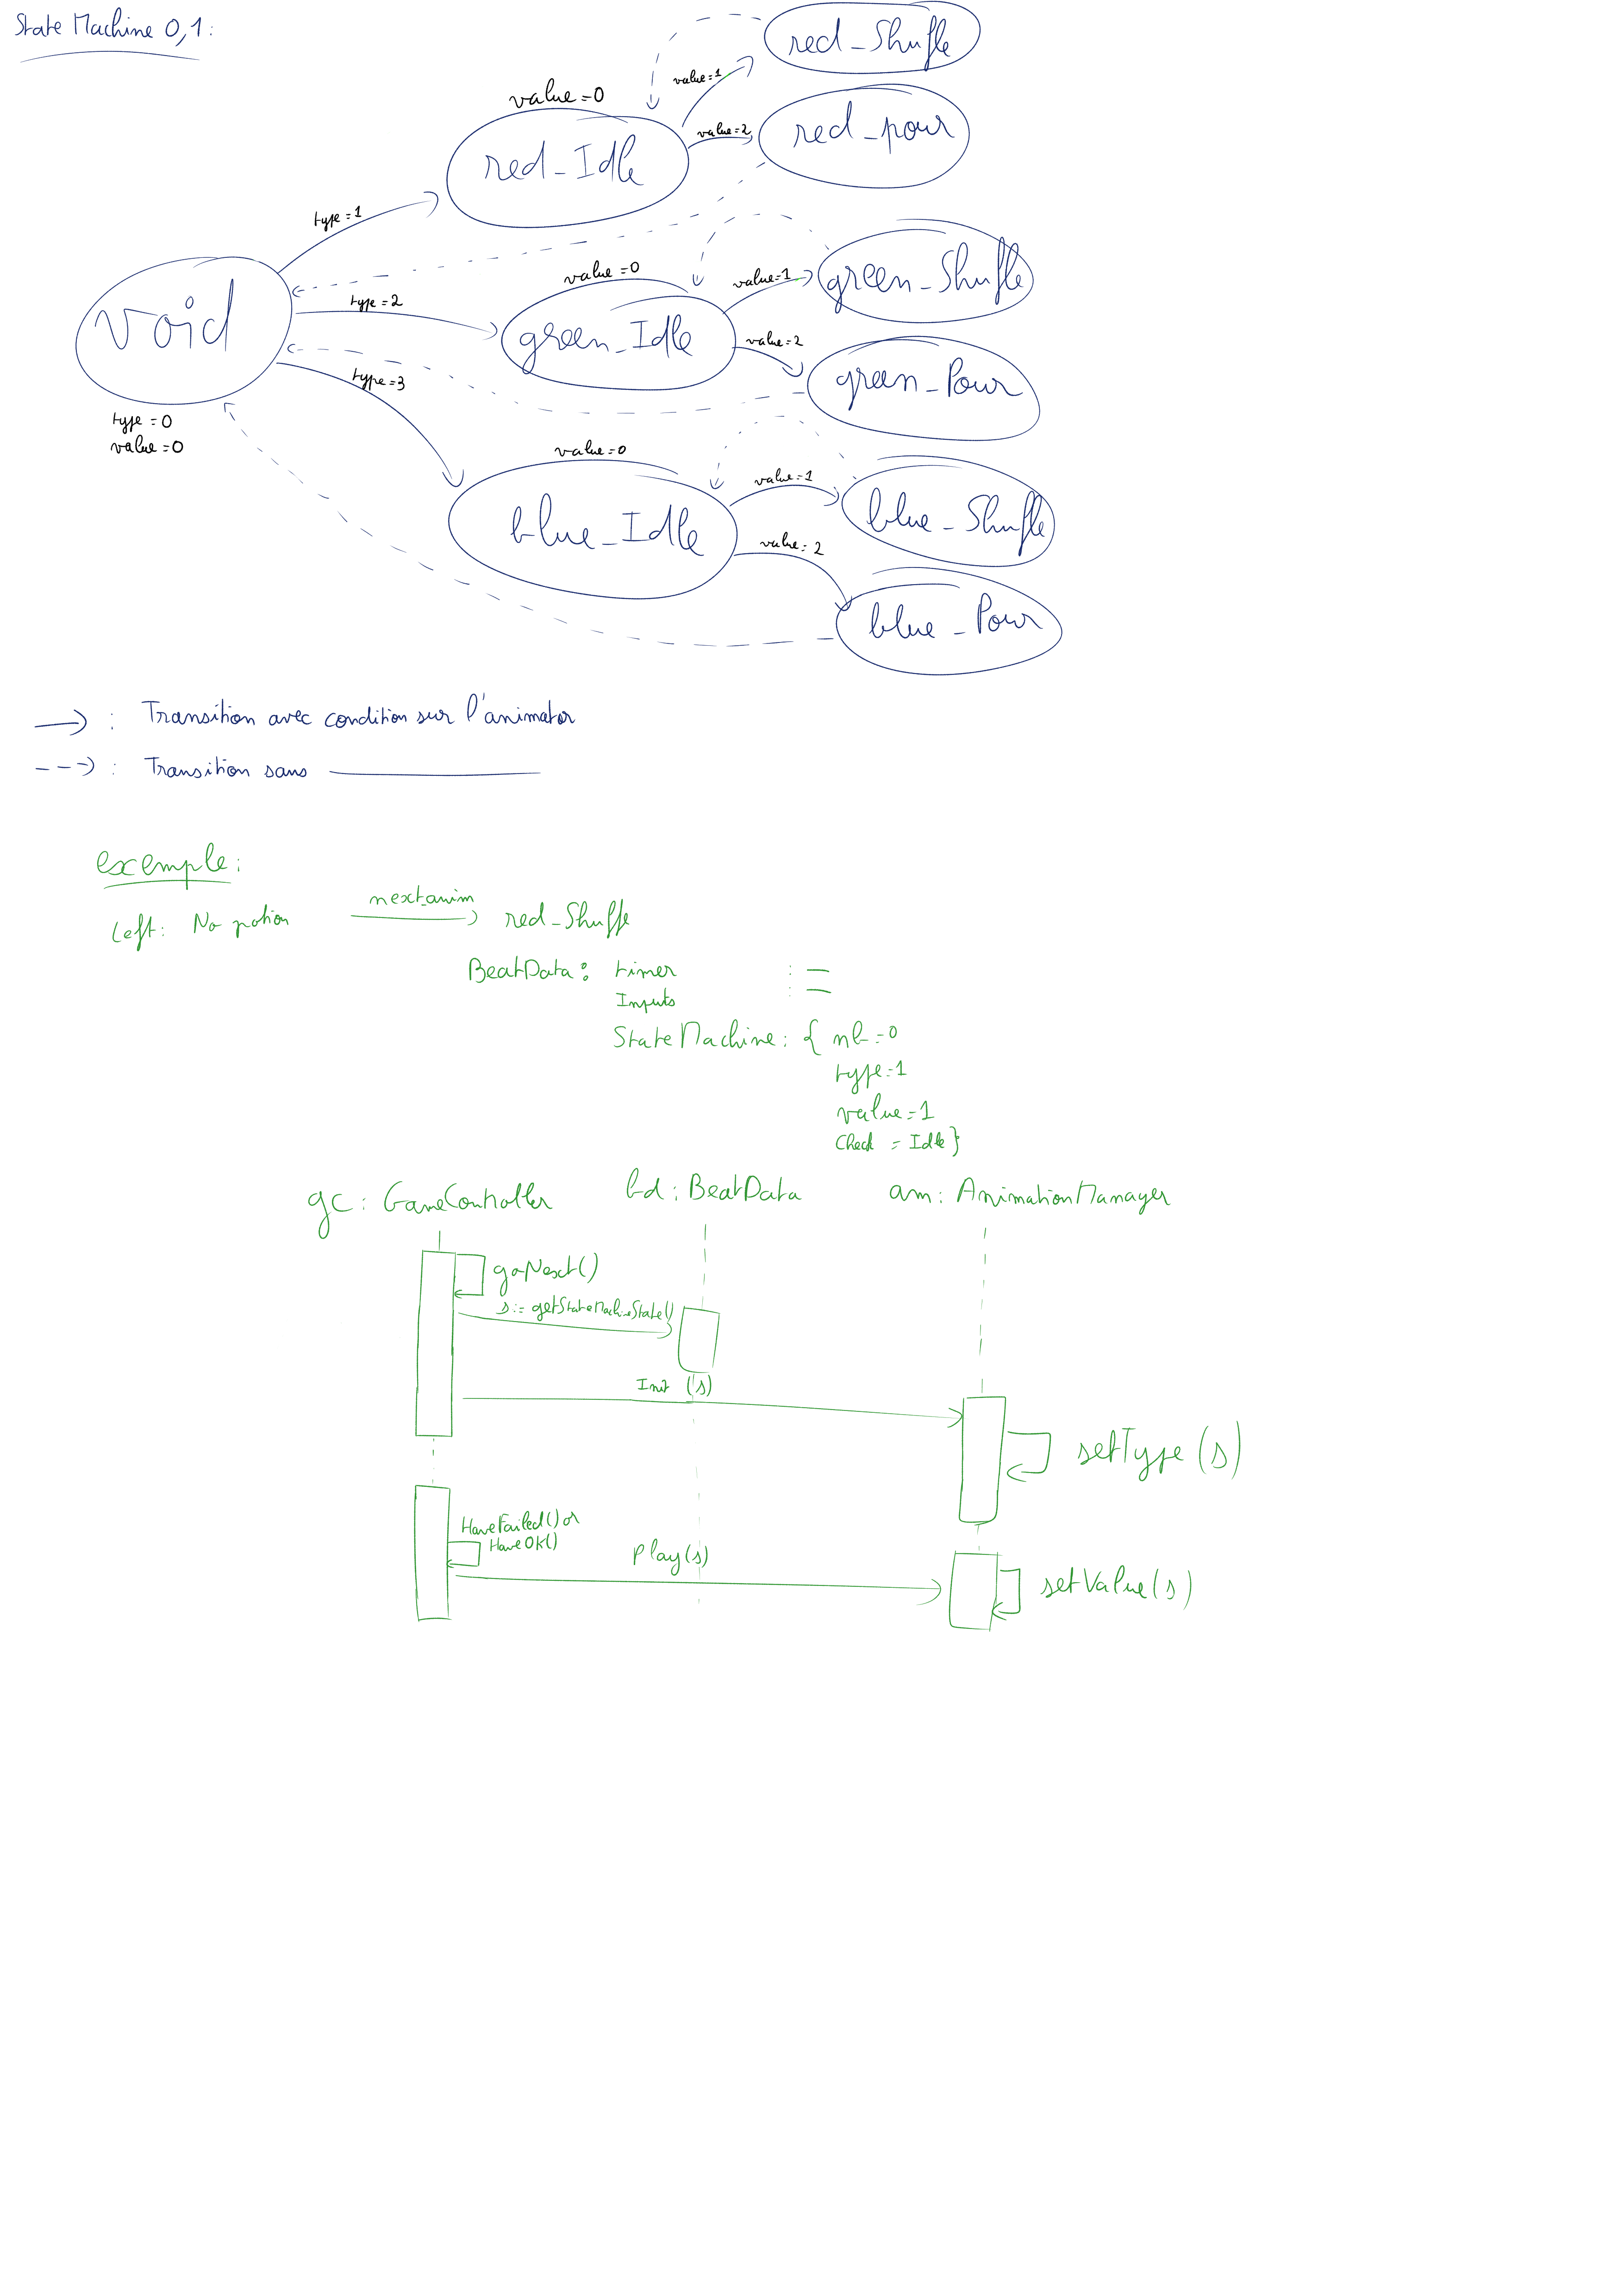 State Machine 0,1:
red_Shufle
value=1
value=0
red_Idle
value=2
red_pour
type=1
void
type=0
value=0
type=2
value=0
green_Idle
value=1
green_Shufle
value=2
green_Pour
type=3
value=0
blue_Idle
value=1
blue_Shufle
value=2
blue_Pour
→ : Transition avec condition sur l'animator
--→ : Transition sans ————
exemple:
Left: No potion
next_anim
red_Shuffe
BeatData: timer : —
Inputs : —
StateMachine: { nb=0
type=1
value=1
Check = Idle}
gc: GameController
bd: BeatData
am: AnimationManager
goNext()
s:= getStateMachineState()
Init (s)
setType (s)
HaveFailed() or
HaveOK()
Play(s)
setValue(s)